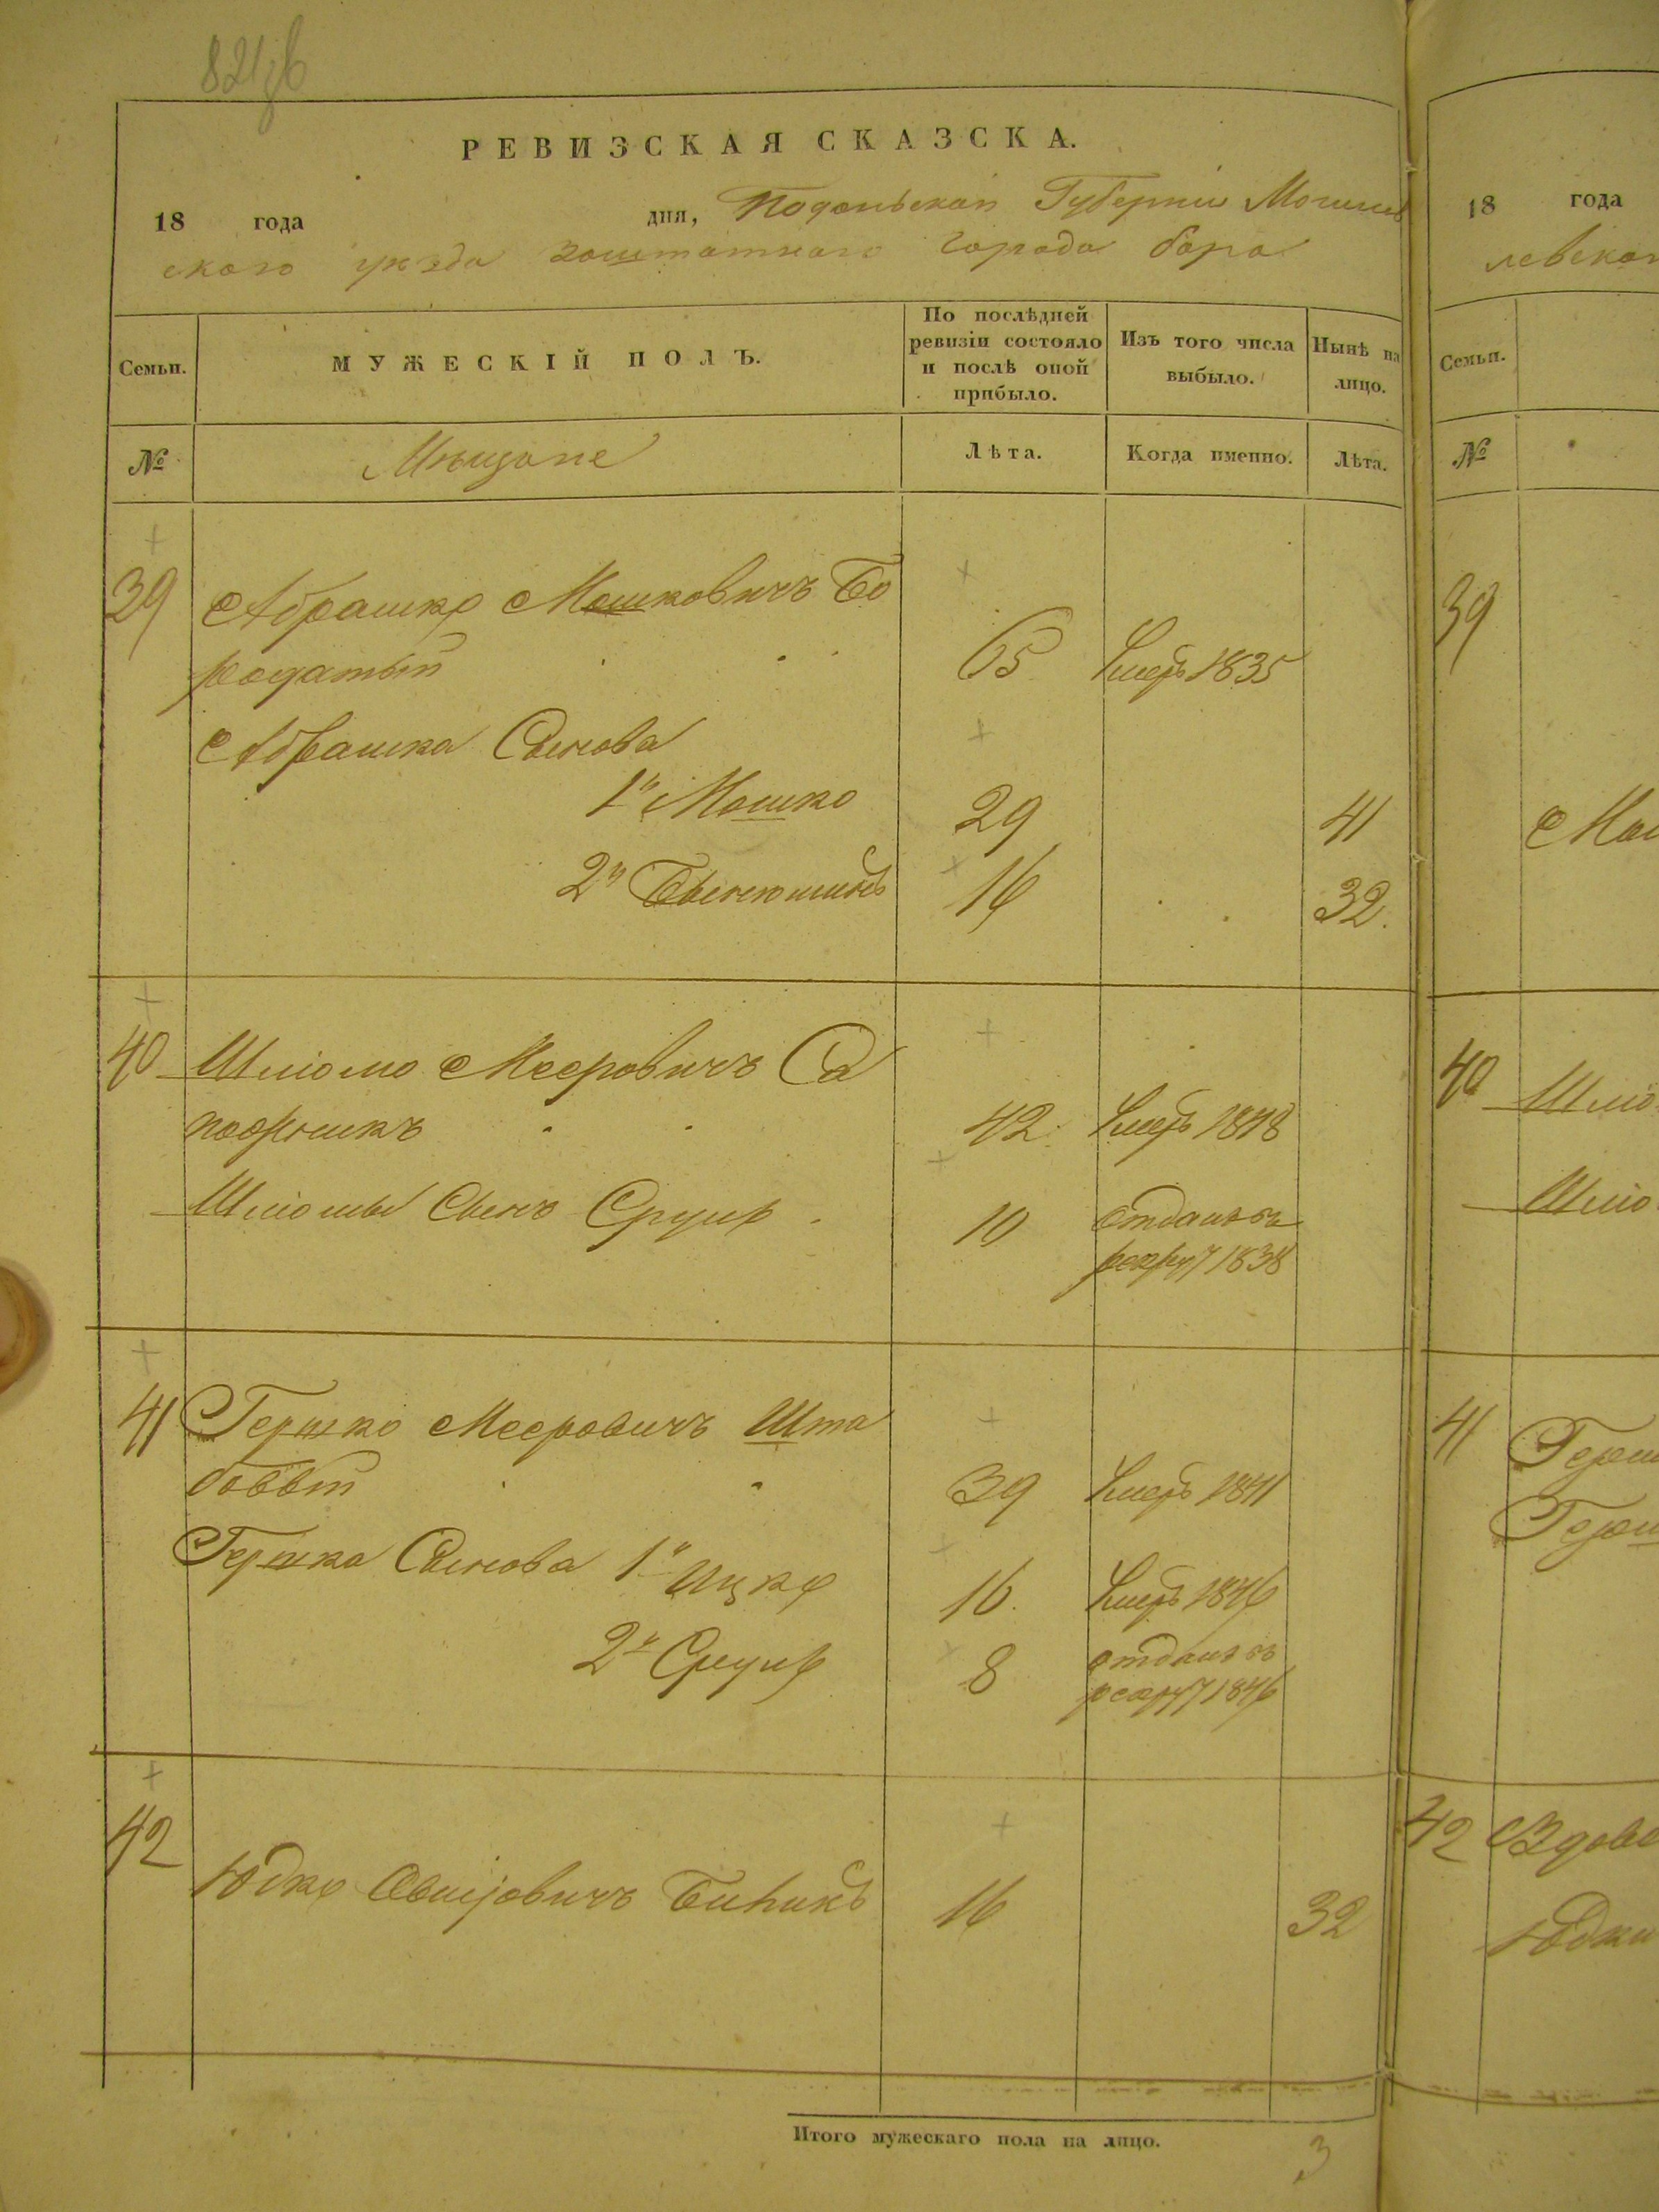 РЕВИЗСКАЯ СКАЗСКА.
18 года дня, Подольской Губернии Могилев
ского уезда заштатного Города бара
Семьи.
МУЖЕСКІЙ ПОЛЪ.
По послѣдней ревизіи состояло и послѣ оной прибыло.
Изъ того числа выбыло.
Нынѣ на лицо.
№
Мещане
Лѣта.
Когда именно.
Лѣта.
39 Абрашко Мошковичъ Бо
родатый 65 Умеръ 1835
Абрашка Сынова
1й Мошко 29 41
2й 16 32.
40 Шліомо Мееровичъ Са
пожникъ 42. Умеръ 1848
Шліомы Сынъ Сруль 10 отданъ въ
рекрут 1838
41 Гершко Мееровичъ Шта
39 Умеръ 1841
Гершка Сынова 1й Ицко 16. Умеръ 1846
2й Сруль 8 отданъ въ
рекрут 1846
42
Юдко 16 32
Итого мужескаго пола на лицо. 3
18 года
левской
Семьи.
№
39
40
41
42